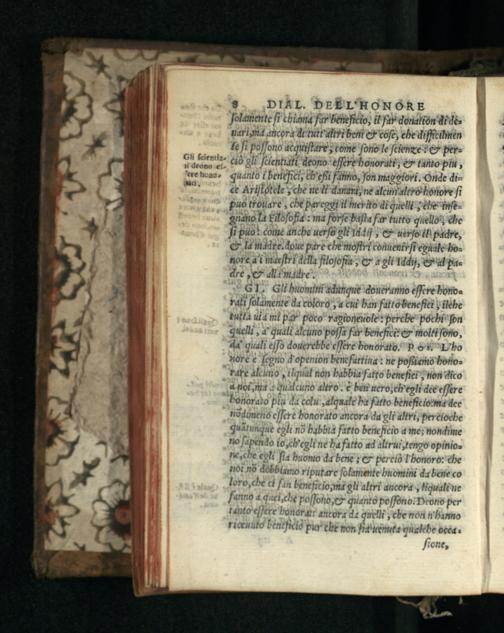 8 DIAL. DELL'HONORE
solamente si chiama far beneficio, il far donation di de-
nari, ma ancora de tutt'altri beni & cose, che difficilmen
te si possono acquistare, come sono le scienze: & per-
ciò gli scientiati deono essere honorati, & tanto piu,
quanto i benefici, ch'essi fanno, son maggiori. Onde di-
ce Aristotele, che ne il danari, ne alcun'altro honore si
puo trouare, che pareggi il merito di quelli, che inse-
gnano la Filosofia: ma forse basta far tutto quello, che
si può: come anche uerso gli Iddij, & uerso il padre,
& la madre. doue pare che mostri conuenirsi eguale ho-
nore a i maestri della filosofia, & a gli Iddij, & al pa-
dre, & alla madre.
GI. Gli huomini adunque doueranno essere hono-
rati solamente da coloro, a cui han fatto benefici, ilche
tutta uia mi par poco ragioneuole: perche pochi son
quelli, a' quali alcuno possa far benefici: & molti sono,
da' quali esso douerebbe essere honorato. POS. L'ho
nore è segno d'openion benefattiua: ne possiamo hono-
rare alcuno, ilqual non habbia fatto benefici, non dico
a noi, ma a qualcuno altro. è ben uero, ch'egli dee essere
honorato piu da colu, alquale ha fatto beneficio: ma dee
nōdimeno essere honorato ancora da gli altri, percioche
quātunque egli nō habbia fatto beneficio a me; nondime
no sapendo io, ch'egli ne ha fatto ad altrui, tengo opinio-
ne, che egli sia huomo da bene; & perciò l'honoro: che
noi nō dobbiamo riputare solamente huomini da bene co
loro, che ci fan beneficio, ma gli altri ancora, liquali ne
fanno a quei, che possono, & quanto possono. Deono per
tanto essere honorati ancora da quelli, che non n'hanno
riceuuto beneficio pur che non sia uenuta qualche occa-
sione,
Gli scientia-
ti deono es-
sere hono-
rati.